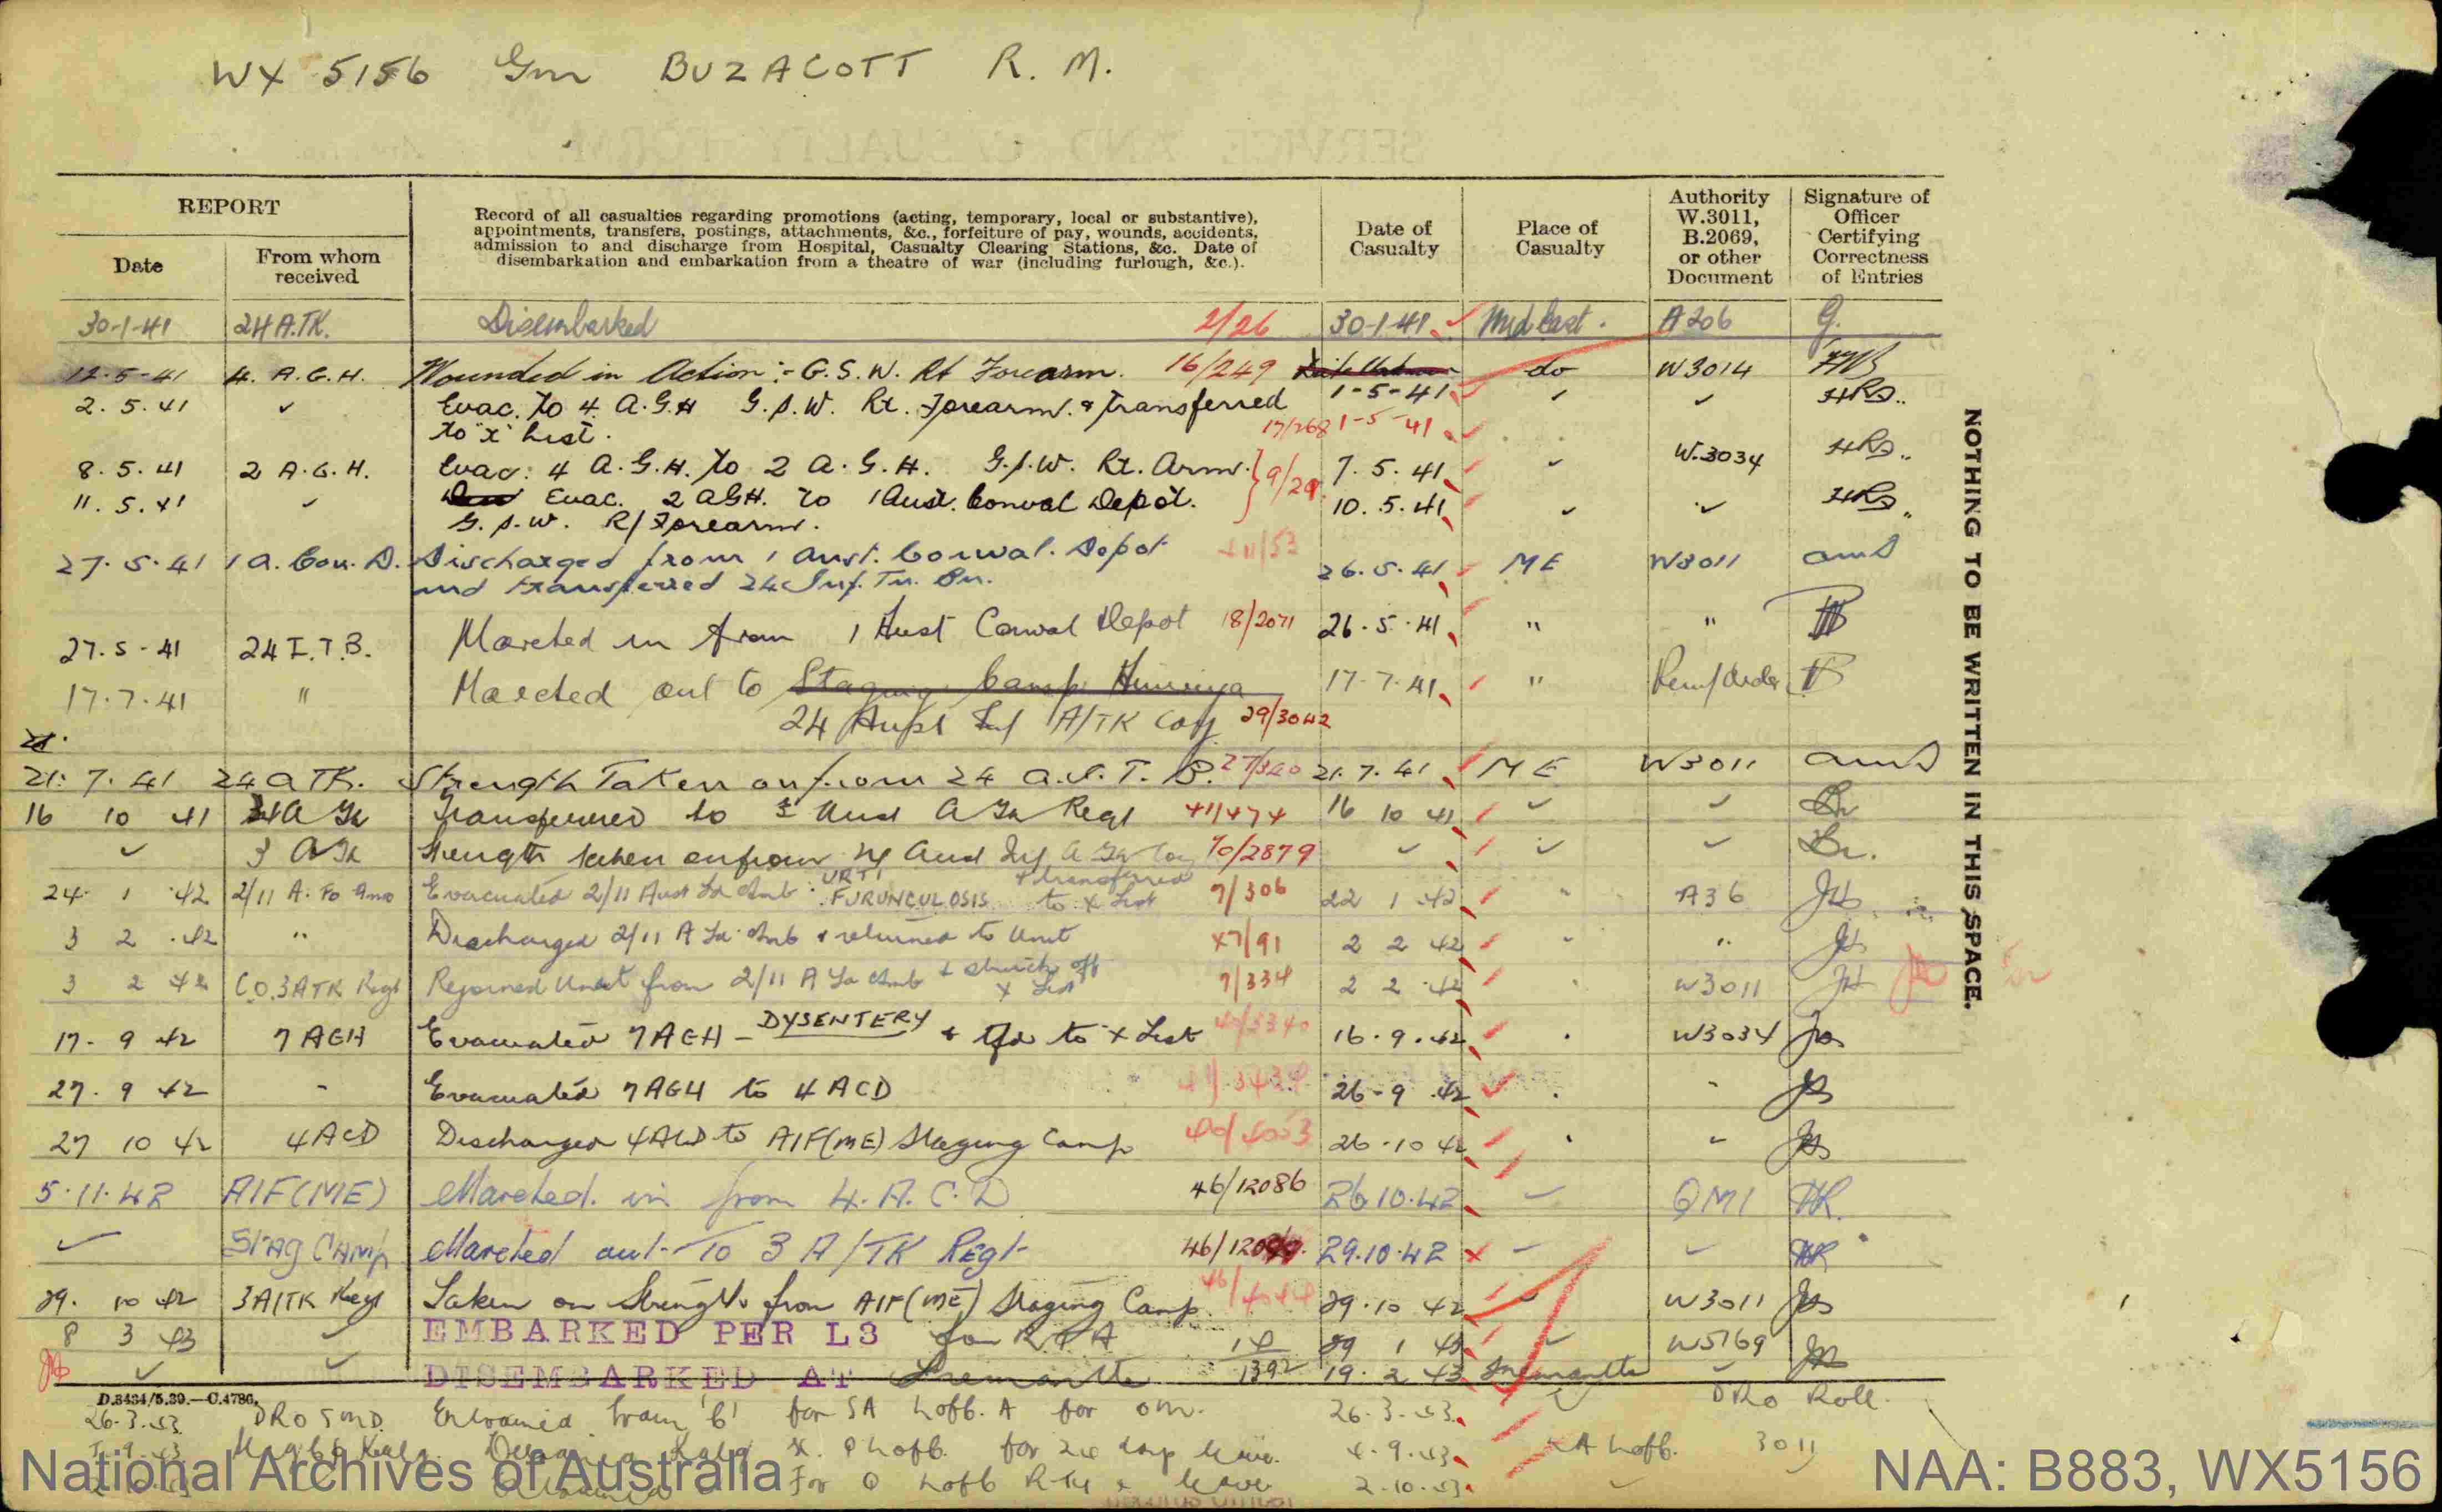 WX 5156 Gnr BUZACOTT R. M.
REPORT
Date
From whom received
Record of all casualties regarding promotions (acting, temporary, local or substantive),
appointments, transfers, postings, attachments, &c., forfeiture of pay, wounds, accidents,
admission to and discharge from Hospital, Casualty Clearing Stations, &c. Date of
disembarkation and embarkation from a theatre of war (including furlough, &c.).
Date of Casualty
Place of Casualty
Authority W.3011, B.2069, or other Document
Signature of Officer Certifying Correctness of Entries
30-1-41 24 A.TK. Disembarked 2/26 30-1-41 Mid East. A206
12-5-41 4. A.G.H. Wounded in Action :- G.S.W. Rt Forearm. 16/249 1-5-41 do W3014
2.5.41 ✓ Evac. to 4 A.G.H G.S.W. Rt. Forearm. & transferred ✓ ✓
to "x" List. 17/268 1-5-41
8.5.41 2 A.G.H. Evac: 4 A.G.H. to 2 A.G.H. G.S.W. Rt. Arm. 9/29 7.5.41 ✓ W.3034
11.5.41 ✓ Evac. 2 AGH. to 1 Aust. Conval Depot. 10.5.41 ✓ ✓
G.S.W. R/Forearm.
27.5.41 1 A. Con. D. Discharged from 1 Aust. Conval. Depot 11/53 26.5.41 ME W3011
and transferred 24 Inf. Tn. Bn.
27.5-41 24 I.T.B. Marched in from 1 Aust Conval Depot 18/2071 26.5.41 " "
17.7.41 " Marched out to Staging Camp 17-7-41 "
24 Aust Inf A/TK Coy 29/3042
21.7.41 24 A TK. Strength Taken on from 24 A.I.T.B. 27/340 21.7.41 ME W3011
16 10 41 24 A Tk Transferred to 3 Aust A Tk Regt 41/474 16 10 41 ✓ ✓
✓ 3 A Tk Strength taken on from 24 Aust Inf A Tk Coy 70/2879 ✓ ✓ ✓
24 1 42 2/11 A. Fd Amb Evacuated 2/11 Aust Fd Amb: URTI FURUNCULOSIS & transferred to X List 9/306 22 1 42 " A36
3 2 42 " Discharged 2/11 A Fd Amb & returned to Unit 47/91 2 2 42 "
3 2 42 C.O. 3 ATK Regt Rejoined Unit from 2/11 A Fd Amb & struck off X List 9/334 2 2 42 W3011
17-9 42 7 AGH Evacuated 7 AGH - DYSENTERY & tfd to X List 40/5340 16.9.42 W3034
27.9 42 - Evacuated 7 AGH to 4 ACD 26-9 42
27 10 42 4 ACD Discharged 4 ACD to AIF(ME) Staging Camp 26-10 42
5.11.42 AIF(ME) Marched in from 4.A.C.D 46/12086 26 10.42 ✓ QMI
✓ STAG CAMP Marched out to 3 A/TK Regt 29.10.42 ✓
29. 10 42 3 A/TK Regt Taken on Strength from AIF(ME) Staging Camp 29.10 42 W3011
8 3 43 ✓ EMBARKED PER L3 for R.T.A 14/1392 29 1 43 ✓ W5169
✓ ✓ DISEMBARKED AT Fremantle 19.2 43 Fremantle
D.3434/5.39.—C.4786.
26.3.43 Entrained train '6' for SA 26.3.43 DRO Roll.
for 24 days leave. 4.9.43 3011
2.10.43
NOTHING TO BE WRITTEN IN THIS SPACE.
National Archives of Australia
NAA: B883, WX5156